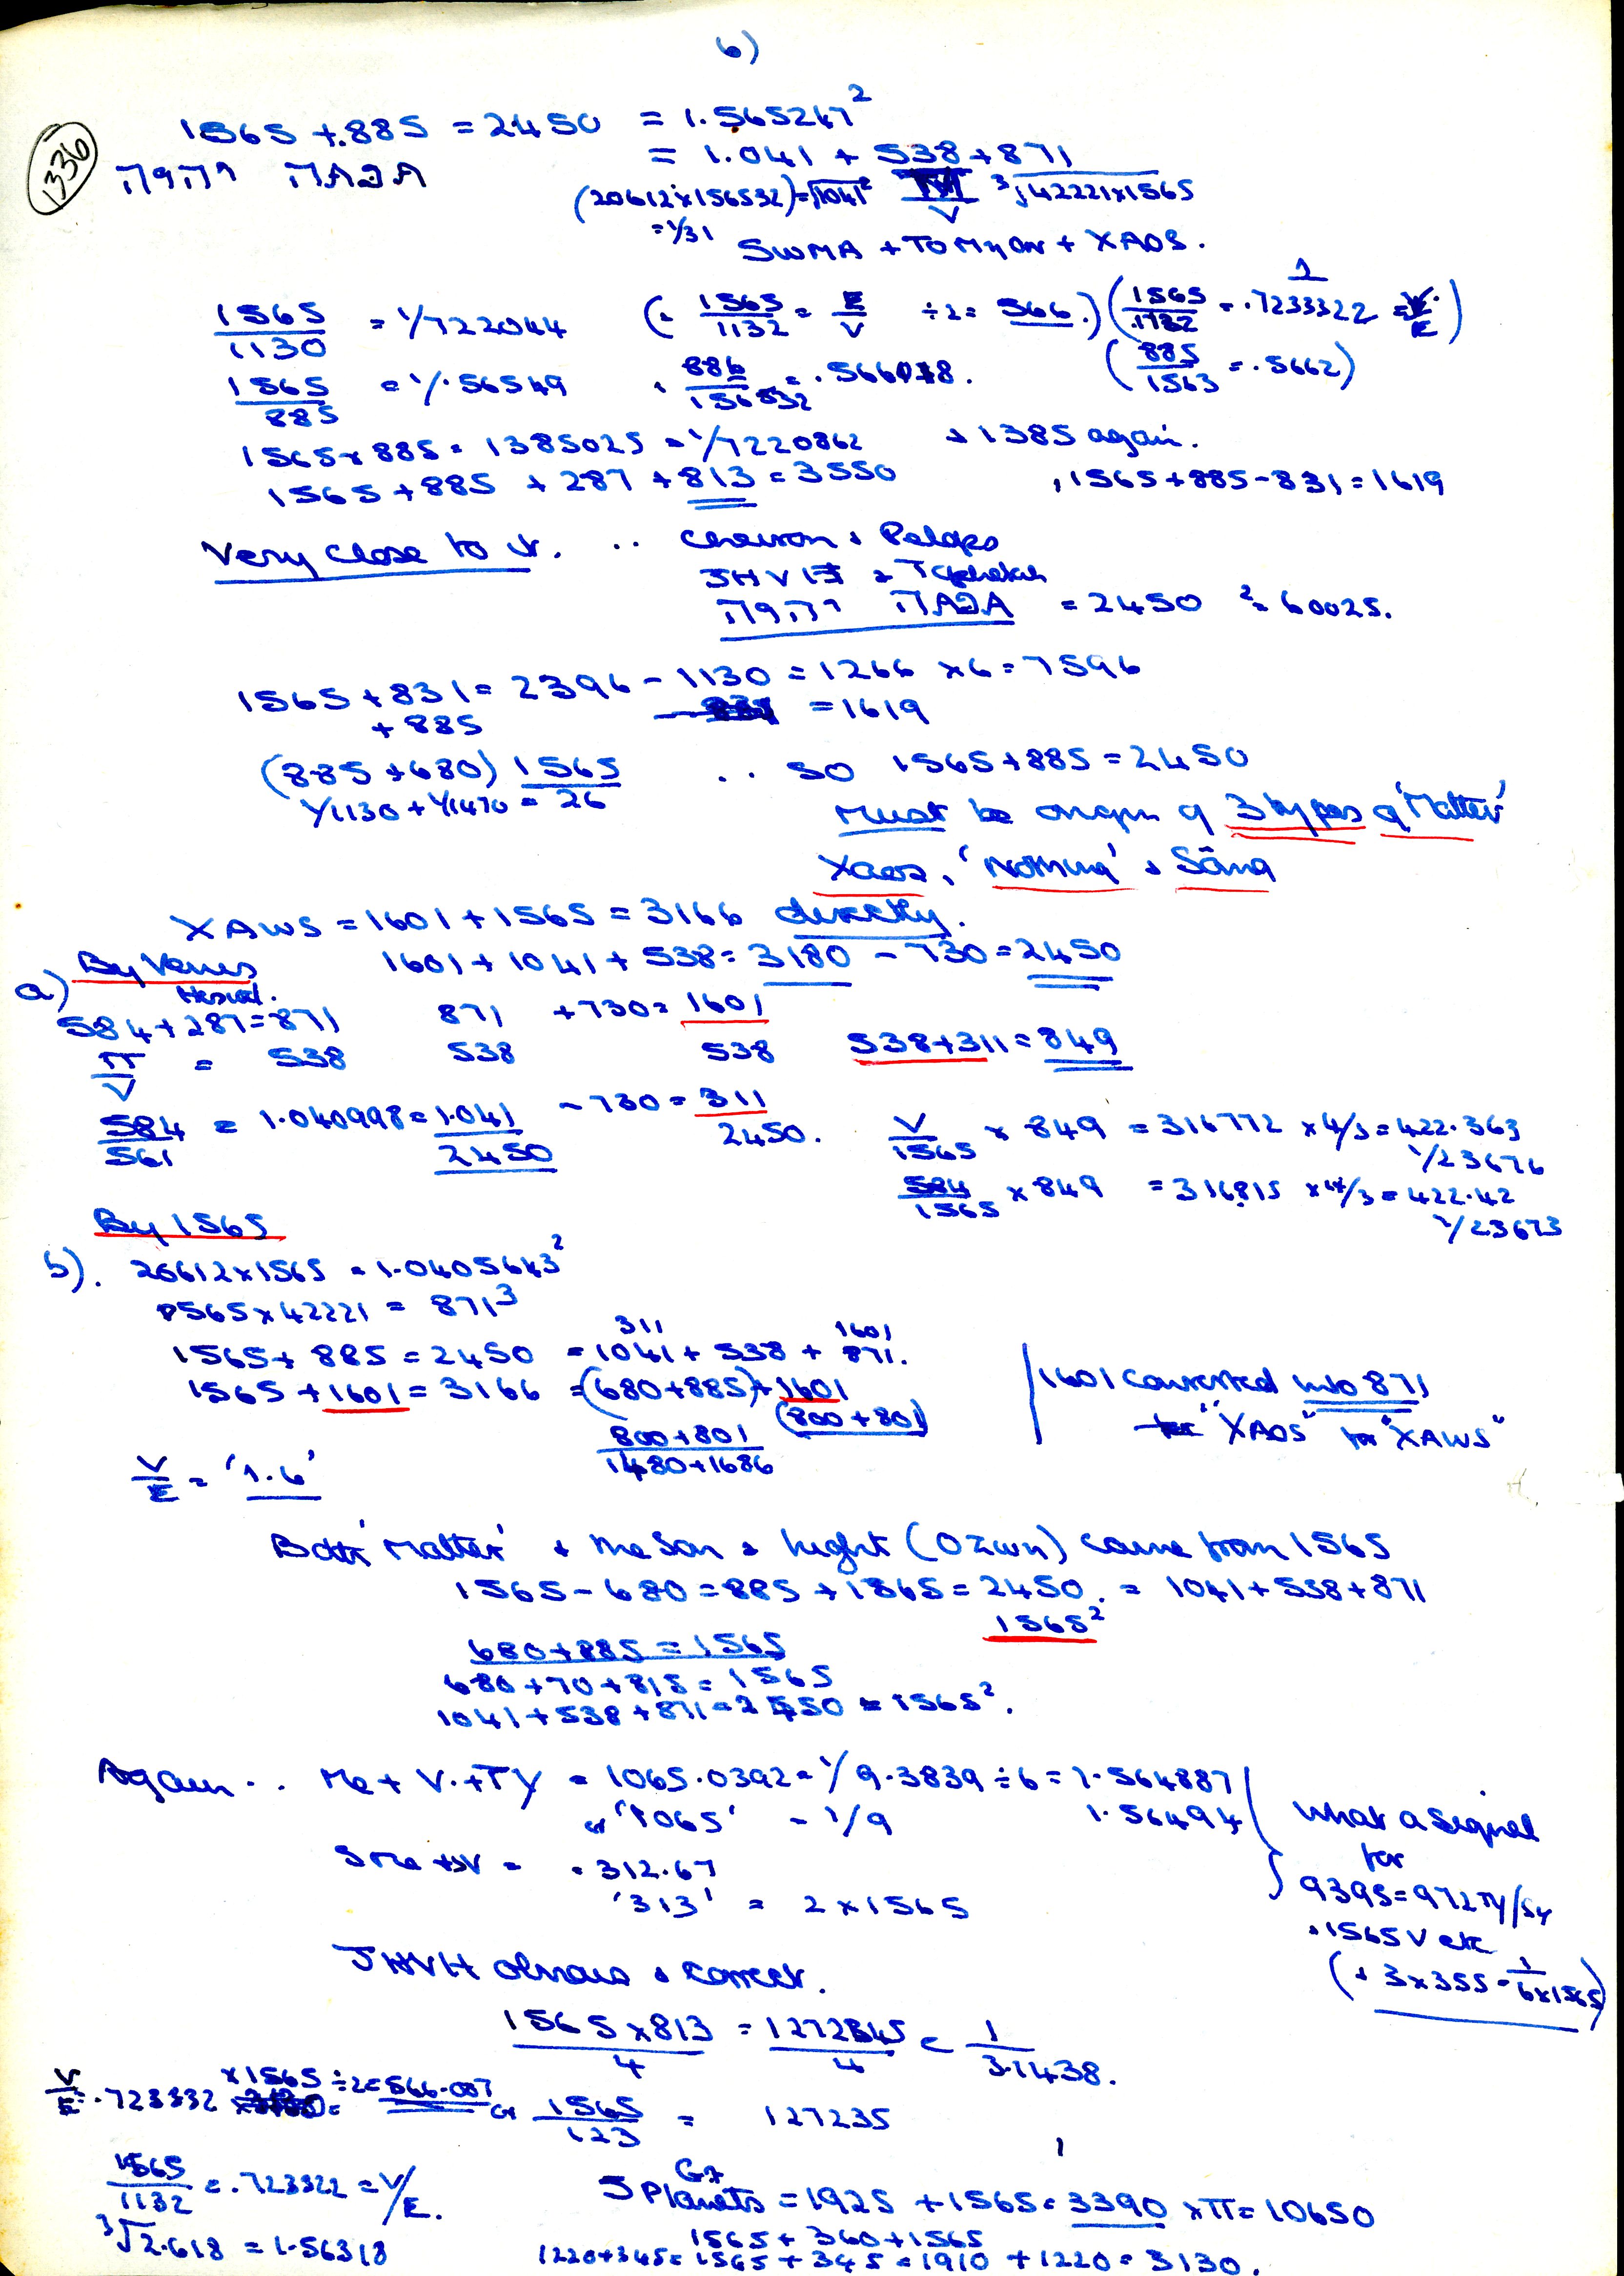 6)
1336
1565 + 885 = 2450 = 1.565247²
= 1.041 + 538 + 871
יהוה
(20612 x 156532) = √1041² ³√42221x1565
= 1/31
V
SWMA + TO Myon + XAOS.
1565/1130 = 1/722044 (. 1565/1132 = E/V ÷2 = 566.) (1565/1132 = 1/.7233322 = V/E)
1565/885 = 1/.56549 . 886/156532 = .566018. (885/1563 = .5662)
1565 x 885 = 1385025 = 1/7220862 + 1385 again.
1565 + 885 + 287 + 813 = 3550 , 1565 + 885 - 831 = 1619
Very close to it. .. Cheiron + Pelops
JHVH +
= 2450 ² = 60025.
1565 + 831 = 2396 - 1130 = 1266 x 6 = 7596
+ 885 = 1619
(885 + 680) 1565 .. so 1565 + 885 = 2450
1/1130 + 1/1470 = 26
Must be origin of 3 types of 'Matter'
Xaos, 'Nothing' + Sôma
XAWS = 1601 + 1565 = 3166 directly.
By Venus 1601 + 1041 + 538 = 3180 - 730 = 2450
a) Hesiod.
584 + 287 = 871 871 + 730 = 1601
π/V = 538 538 538 538 + 311 = 849
584/561 = 1.040998 = 1.041 - 730 = 311
2450 2450.
V/1565 x 849 = 316772 x 4/3 = 422.363
1/23676
584/1565 x 849 = 316815 x 4/3 = 422.42
1/23673
By 1565
b). 20612 x 1565 = 1.0405643²
1565 x 42221 = 871³
311 1601
1565 + 885 = 2450 = 1041 + 538 + 871.
1565 + 1601 = 3166 = (680 + 885) + 1601
(800 + 801)
800 + 801
1480 + 1686
1601 converted into 871
"XAOS" for "XAWS"
V/E = '1.6'
Both 'Matter' + the Son + light (OZwn) came from 1565
1565 - 680 = 885 + 1565 = 2450. = 1041 + 538 + 871
1565²
680 + 885 = 1565
680 + 70 + 815 = 1565
1041 + 538 + 871 = 2450 = 1565².
Again .. Me + V. + TY = 1065.0392 = 1/9.3839 ÷ 6 = 1.564887
or '1065' = 1/9 1.56494
= .312.67
'313' = 2 x 1565
What a signal
for
9395 = 972 TY/SY
+ 1565 V etc
(+ 3 x 355 = 1/6x1565)
JHVH obvious + correct.
1565 x 813/4 = 1272345/4 = 1/3.1438.
V/E = .723332 x 1565 ÷2 = 566.007 or 1565/123 = 127235
1565/1132 = .723322 = V/E.
5 Planets = 1925 + 1565 = 3390 x π = 10650
³√2.618 = 1.56318
1565 + 360 + 1565
1220 + 345 = 1565 + 345 = 1910 + 1220 = 3130.